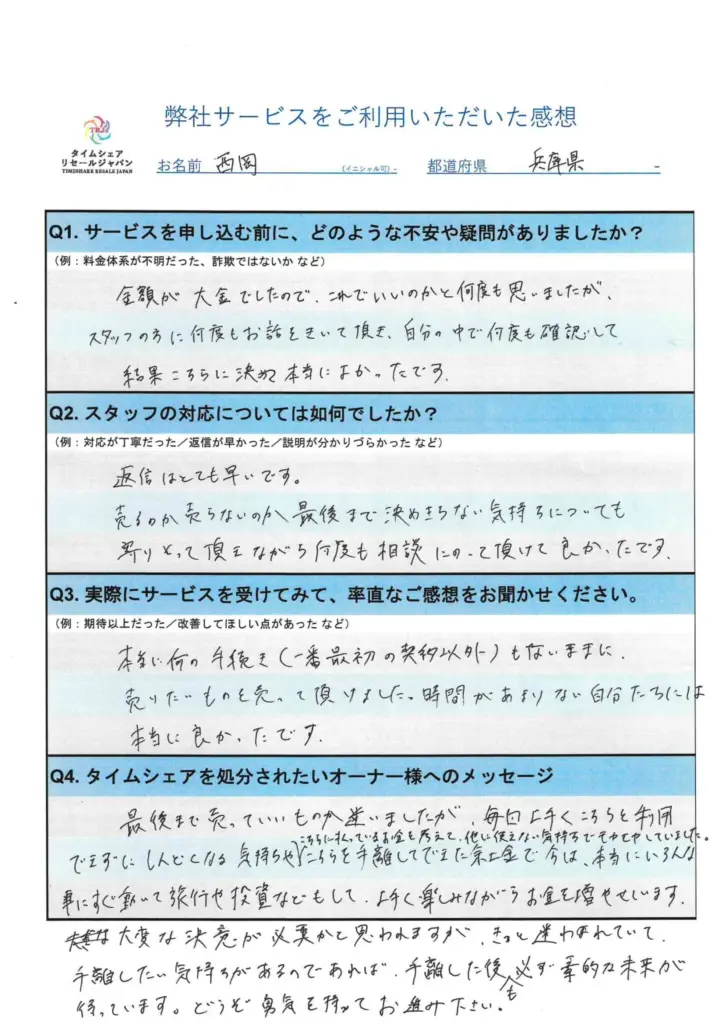 弊社サービスをご利用いただいた感想
TRJ
タイムシェア
リセールジャパン
TIMESHARE RESALE JAPAN
お名前 西岡 (イニシャル可)- 都道府県 兵庫県 -
Q1. サービスを申し込む前に、どのような不安や疑問がありましたか？
（例：料金体系が不明だった、詐欺ではないか など）
金額が大金でしたので、これでいいのかと何度も思いましたが、
スタッフの方に何度もお話をきいて頂き、自分の中で何度も確認して
結果こちらに決めて本当によかったです。
Q2. スタッフの対応については如何でしたか？
（例：対応が丁寧だった／返信が早かった／説明が分かりづらかった など）
返信はとても早いです。
売るのか売らないのか最後まで決めきらない気持ちについても
寄りそって頂きながら何度も相談にのって頂けて良かったです。
Q3. 実際にサービスを受けてみて、率直なご感想をお聞かせください。
（例：期待以上だった／改善してほしい点があった など）
本当に何の手続き（一番最初の契約以外）もないままに、
売りたいものを売って頂けました。時間があまりない自分たちには
本当に良かったです。
Q4. タイムシェアを処分されたいオーナー様へのメッセージ
最後まで売っていいものか迷いましたが、毎回上手くこちらを利用
こちらに払っているお金を考えて、他に使えない気持ちでモヤモヤしていました。
できずにしんどくなる気持ちや、こちらを手離してできた余剰金で今は、本当にいろんな
事にすぐ動いて旅行や投資などもして、上手く楽しみながらお金を増やせています。
大変な決意が必要かと思われますが、きっと迷われていて、
手離したい気持ちがあるのであれば、手離した後も必ず素的な未来が
待っています。どうぞ勇気を持ってお進み下さい。